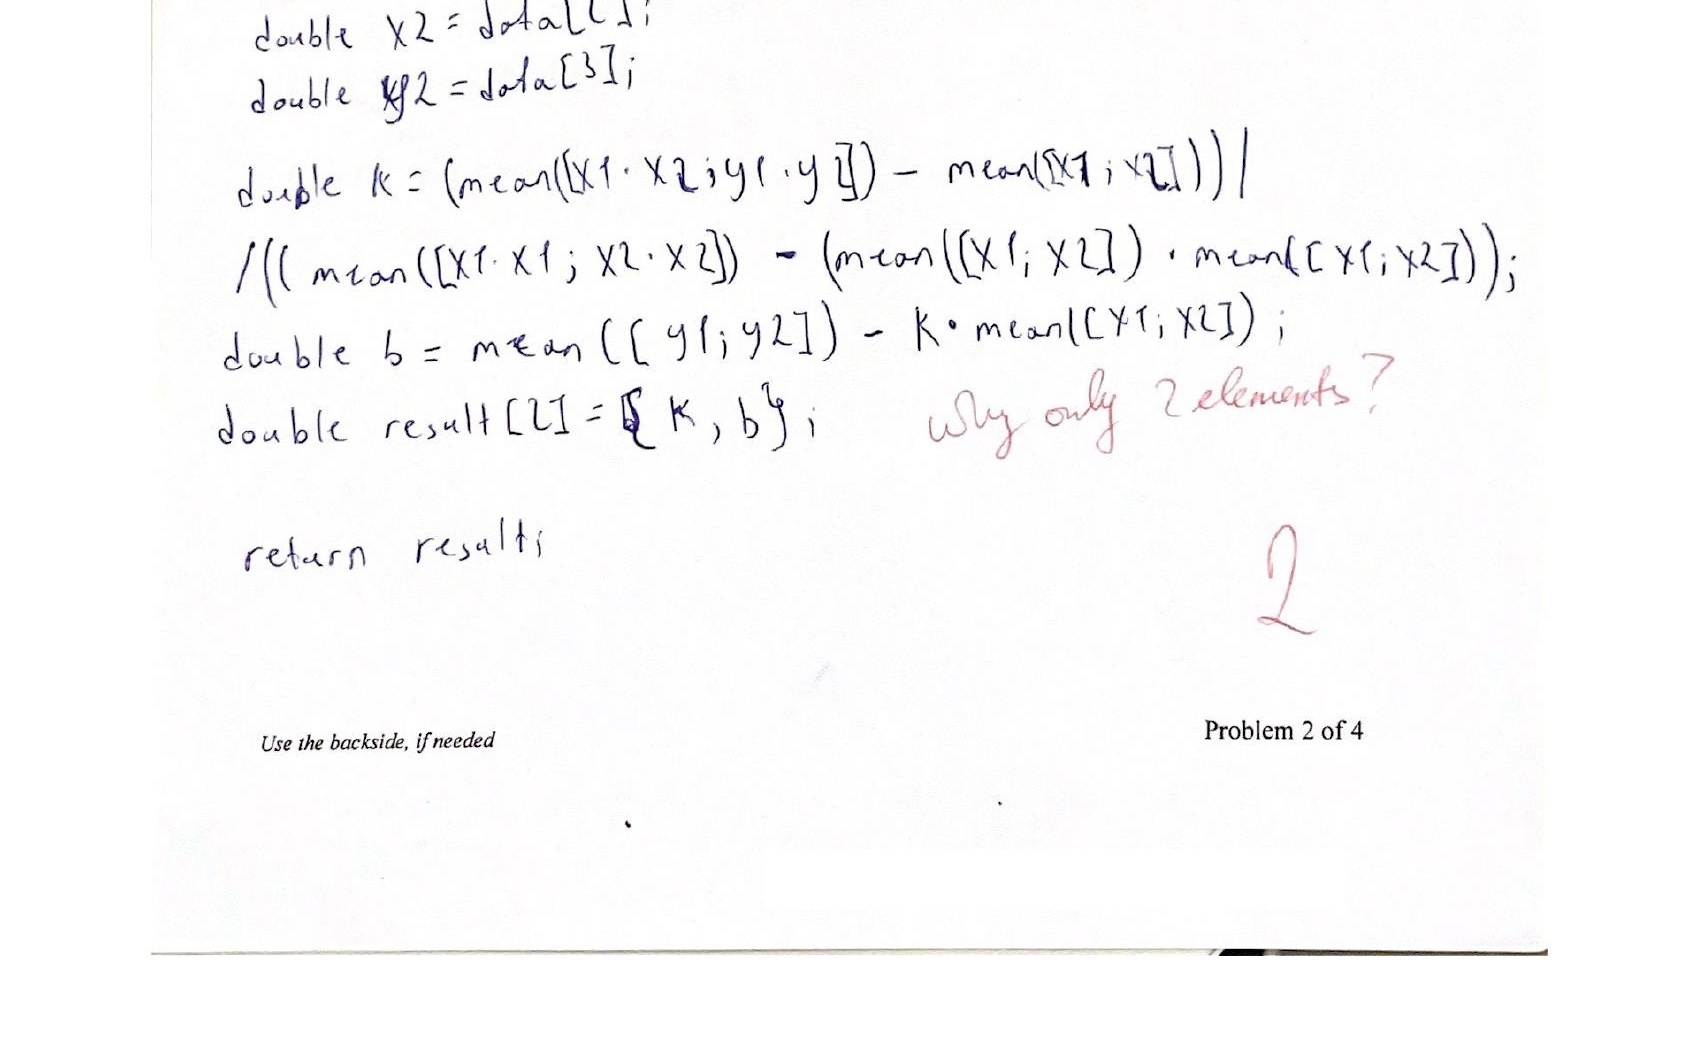 double x2 = data[2];
double y2 = data[3];
double k = (mean([x1·x2; y1·y2]) - mean([x1; x2]))/
/((mean([x1·x1; x2·x2]) - (mean([x1; x2]) · mean([x1; x2]));
double b = mean([y1; y2]) - k·mean([x1; x2]);
double result[2] = { k, b};
why only 2 elements?
return result;
2
Use the backside, if needed
Problem 2 of 4